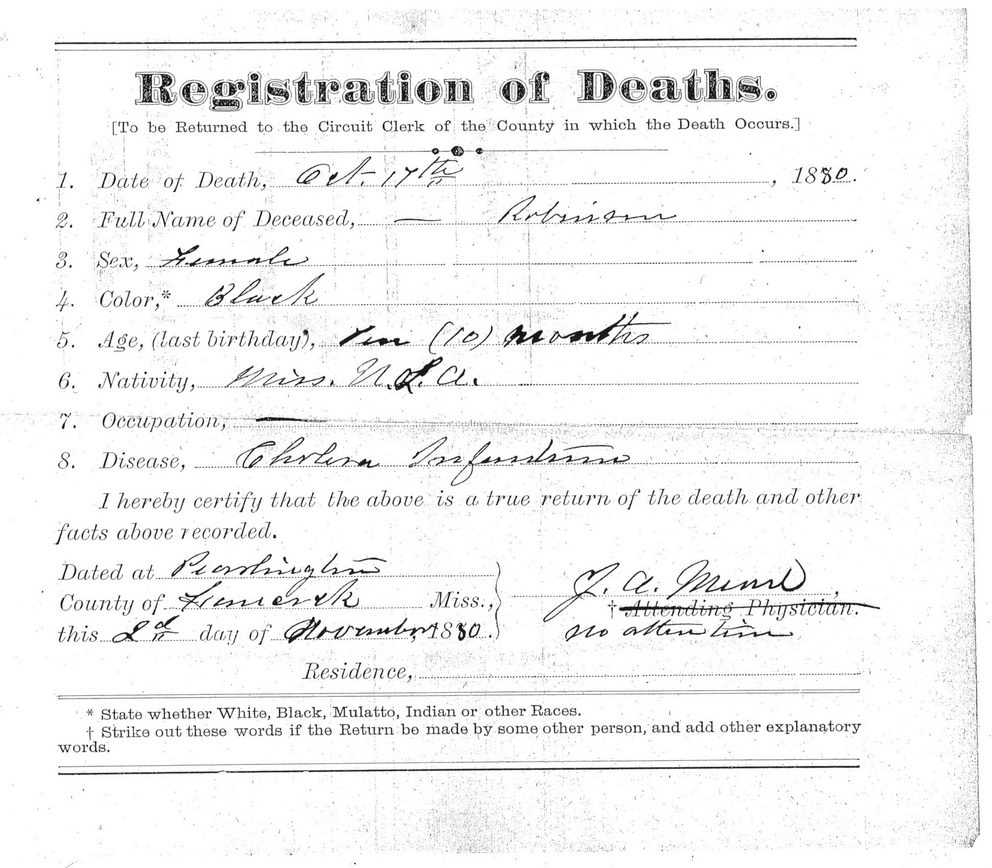 Registration of Deaths.
[To be Returned to the Circuit Clerk of the County in which the Death Occurs.]
1. Date of Death, Oct. 17th, 1880.
2. Full Name of Deceased, — Robinson
3. Sex, Female
4. Color,* Black
5. Age, (last birthday), Ten (10) months
6. Nativity, Miss. U.S.A.
7. Occupation, —
8. Disease, Cholera Infantum
I hereby certify that the above is a true return of the death and other
facts above recorded.
Dated at Pearlington
County of Hancock Miss.,
this 2d day of November, 1880.
J. A. Mead,
† Attending Physician.
no attention
Residence,
* State whether White, Black, Mulatto, Indian or other Races.
† Strike out these words if the Return be made by some other person, and add other explanatory
words.